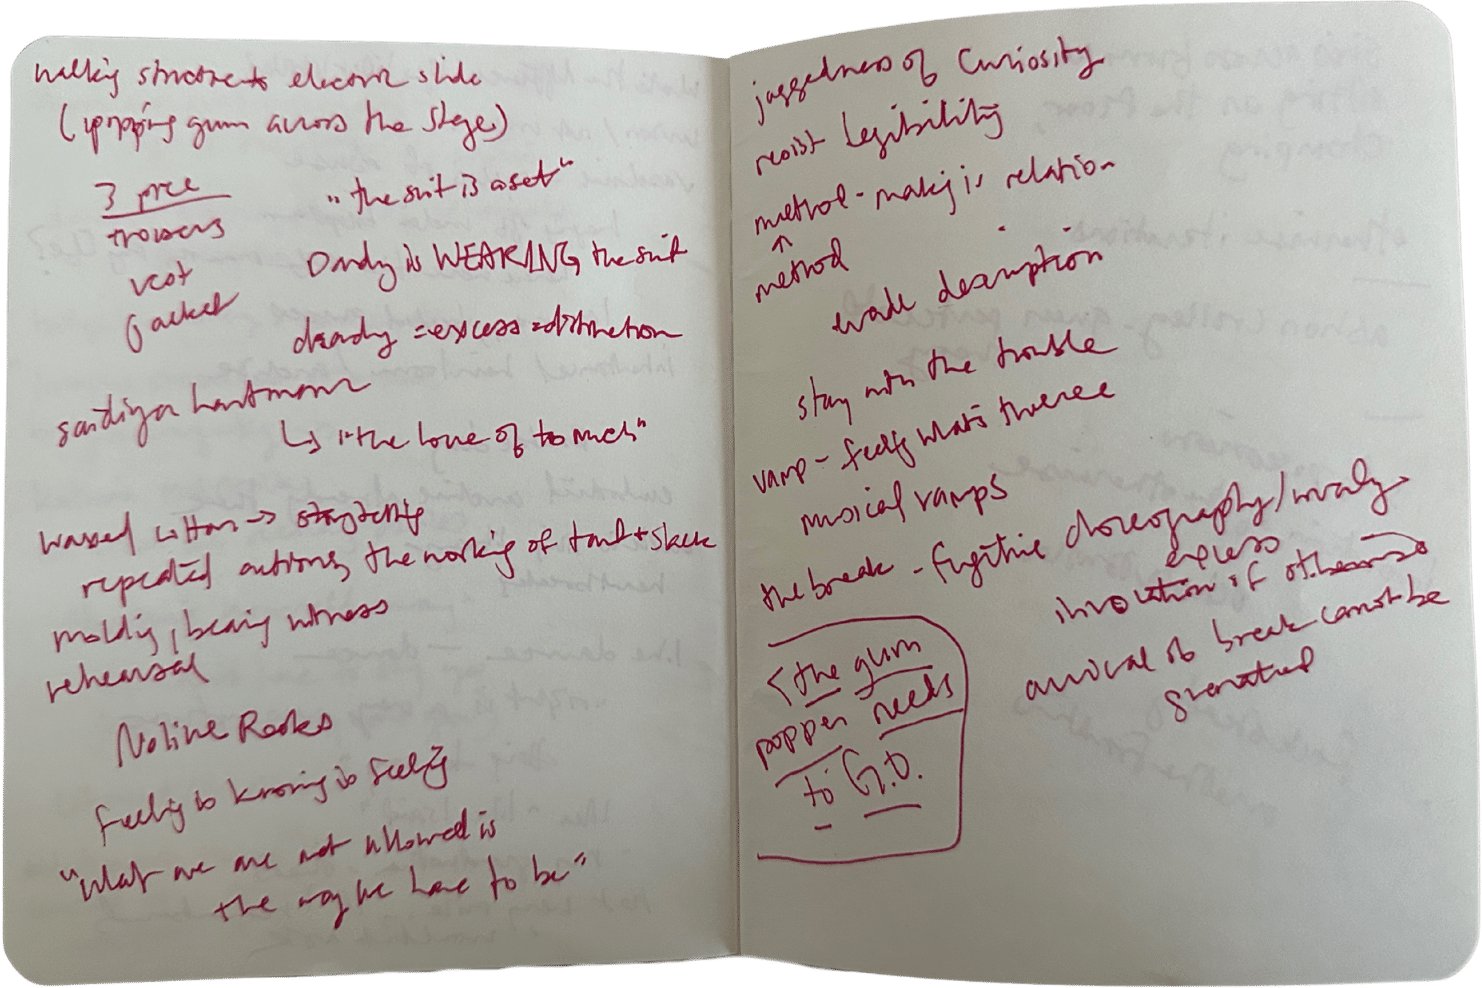 walking structure → electric slide
(popping gum across the stage)
3 piece
trousers
vest
jacket
"the suit is a set"
Dandy is WEARING the suit
dandy = excess = distinction
saidiya hartman
↳ "the love of too much"
waxed cotton → storytelling
repeated actions, the working of taut + slack
molding, bearing witness
rehearsal
Noliwe Rooks
feeling is knowing is feeling
"What we are not allowed is
the way we have to be"
jaggedness of Curiosity
resist Legibility
method - making is relation
↑
method
evade description
stay with the trouble
vamp - feeling what's there
musical vamps
the break - fugitive choreography/
excess
invocation of otherwise
arrival of break cannot be
<the gum
popper needs
to G.O.